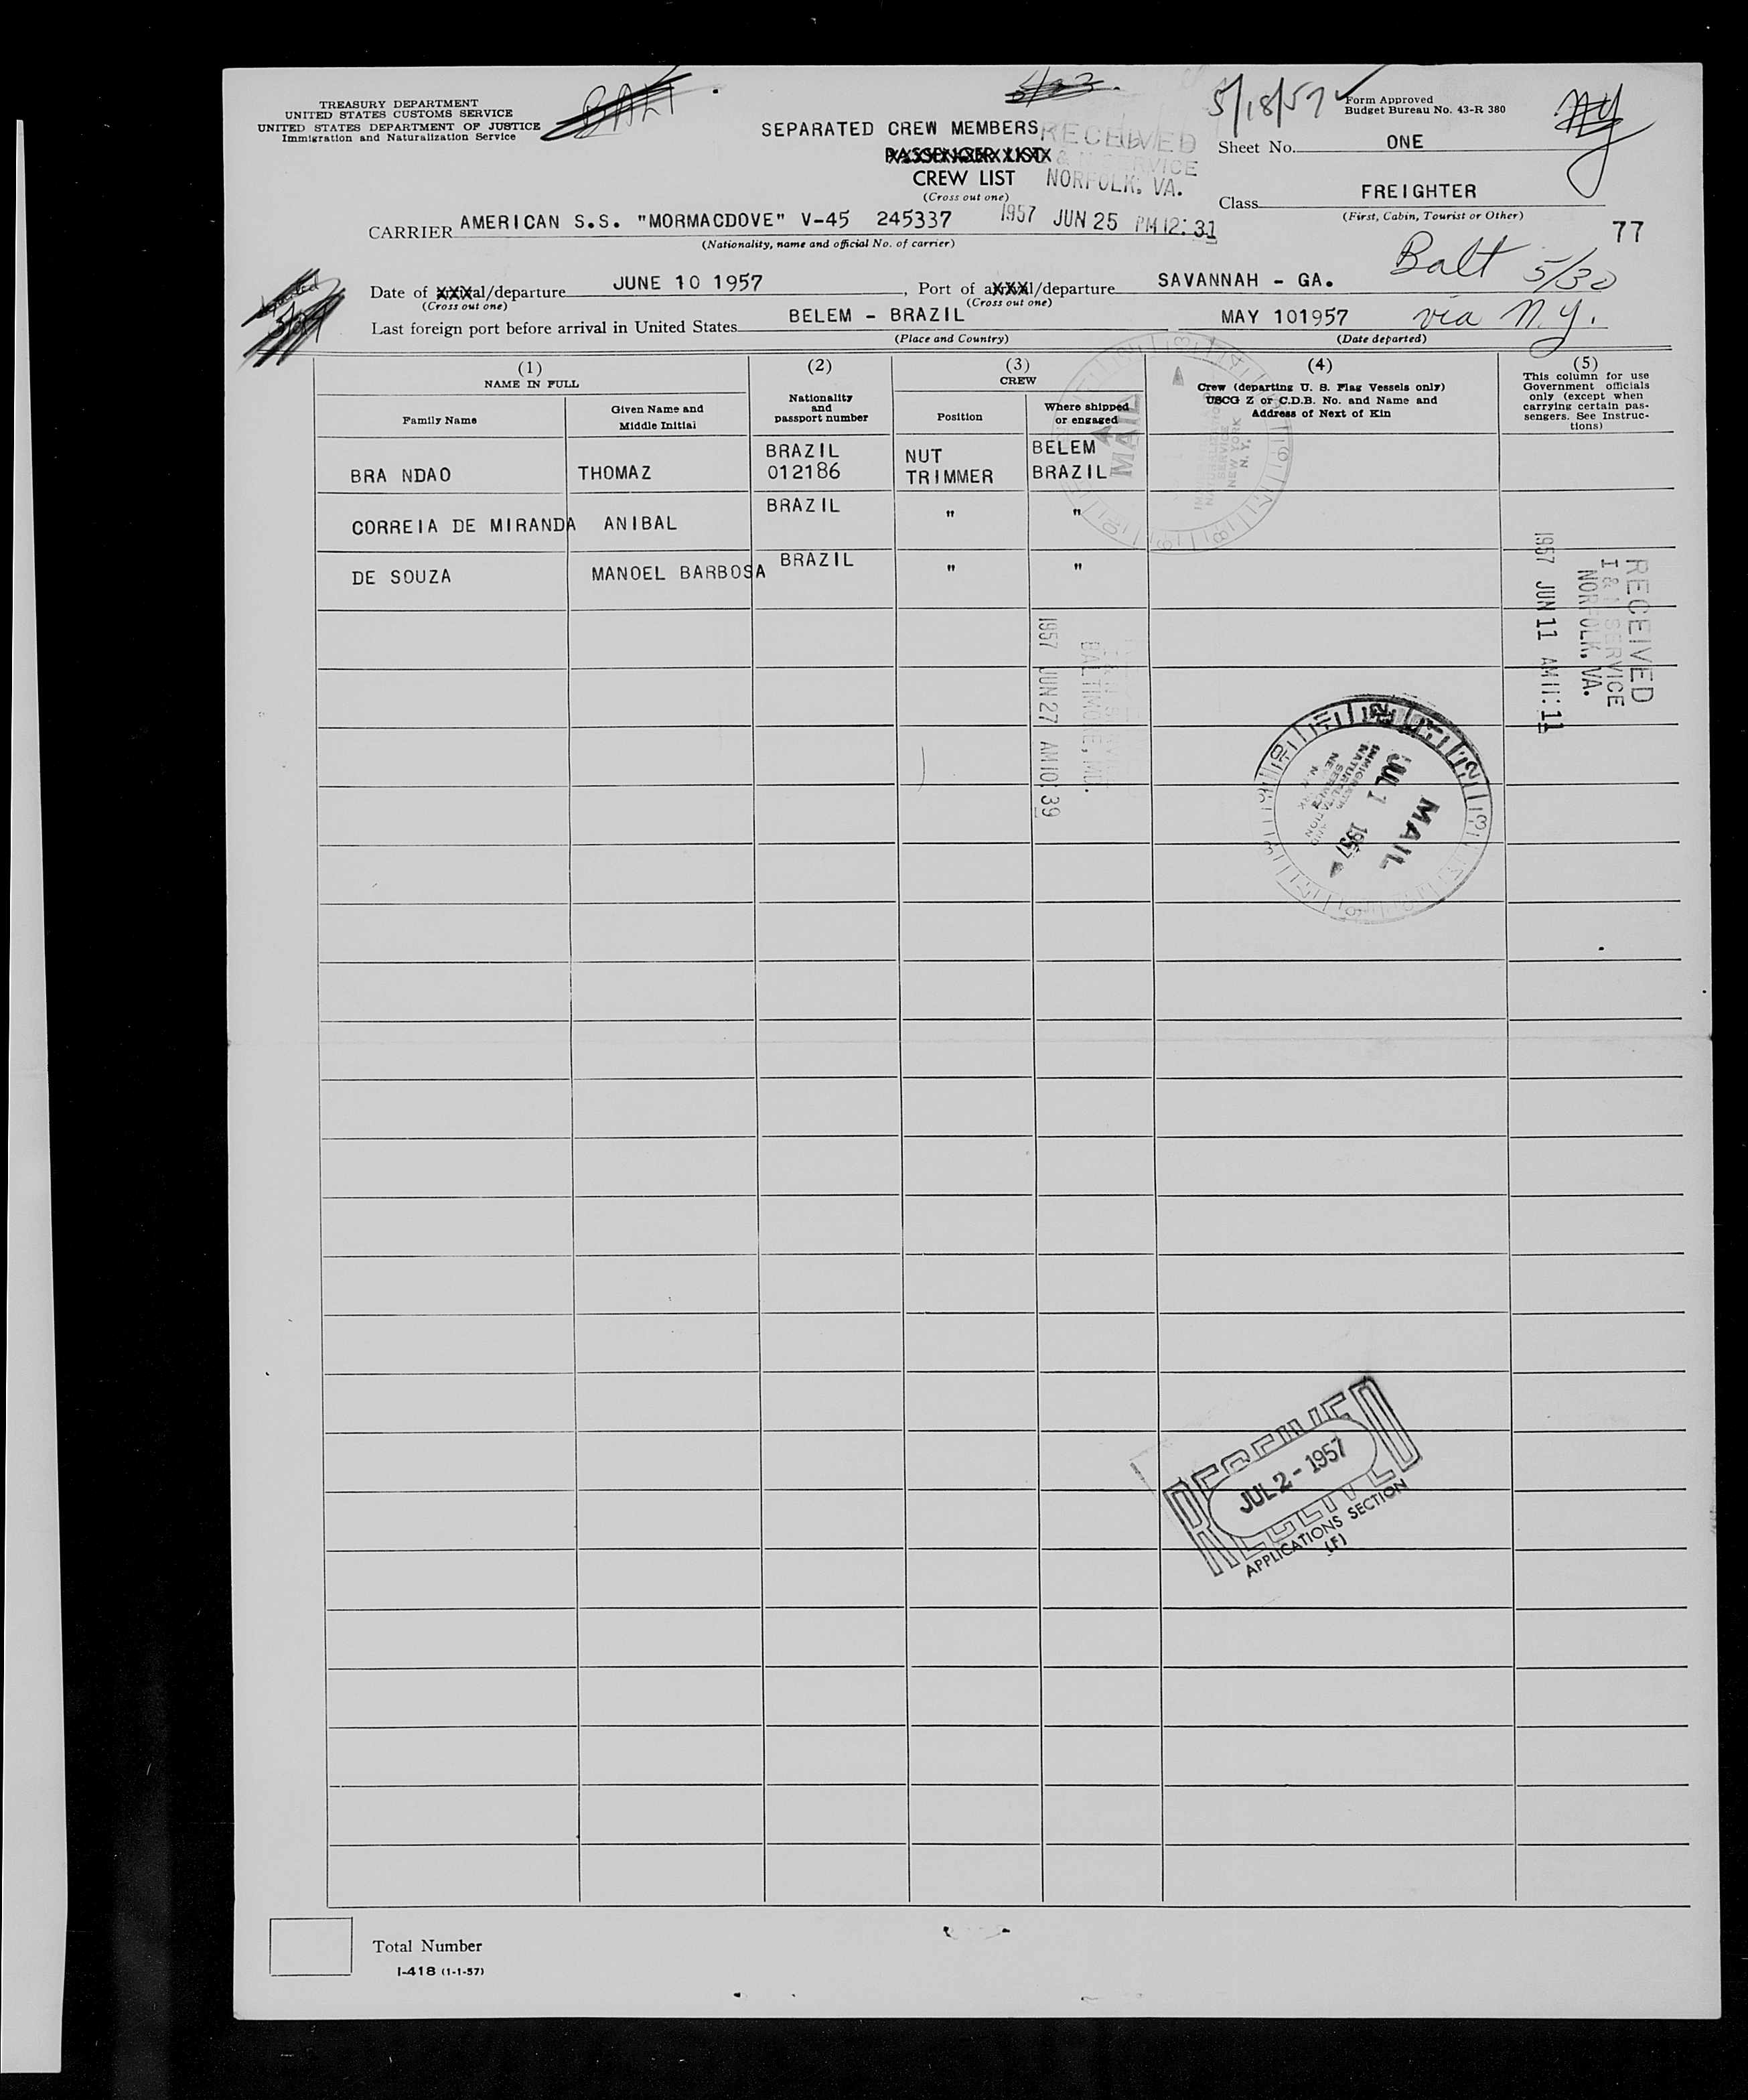 TREASURY DEPARTMENT
UNITED STATES CUSTOMS SERVICE
UNITED STATES DEPARTMENT OF JUSTICE
Immigration and Naturalization Service
BALT
5/23.
5/18/57
Form Approved
Budget Bureau No. 43-R 380
NY
SEPARATED CREW MEMBERS
PASSENGER LIST
CREW LIST
(Cross out one)
RECEIVED
& N SERVICE
NORFOLK, VA.
1957 JUN 25 PM 12:31
Sheet No. ONE
Class FREIGHTER
(First, Cabin, Tourist or Other)
77
CARRIER AMERICAN S.S. "MORMACDOVE" V-45 245337
(Nationality, name and official No. of carrier)
Balt 5/30
via N.Y.
Date of XXXal/departure JUNE 10 1957, Port of aXXXl/departure SAVANNAH - GA.
(Cross out one) (Cross out one)
Last foreign port before arrival in United States BELEM - BRAZIL MAY 101957
(Place and Country) (Date departed)
(1) (2) (3) (4) (5)
NAME IN FULL
Family Name
Given Name and Middle Initial
Nationality and passport number
CREW
Position
Where shipped or engaged
Crew (departing U. S. Flag Vessels only)
USCG Z or C.D.B. No. and Name and
Address of Next of Kin
This column for use
Government officials
only (except when
carrying certain pas-
sengers. See Instruc-
tions)
BRAZIL NUT BELEM
BRA NDAO THOMAZ 012186 TRIMMER BRAZIL
CORREIA DE MIRANDA ANIBAL BRAZIL " "
DE SOUZA MANOEL BARBOSA BRAZIL " "
MAIL
IMMIGRATION
NATURALIZATION
SERVICE
NEW YORK
N.Y.
RECEIVED
I & N SERVICE
NORFOLK, VA.
1957 JUN 11 AM 11:11
BALTIMORE, MD.
1957 JUN 27 AM 10:39
MAIL
JUL 1 1957
RECEIVED
JUL 2 - 1957
APPLICATIONS SECTION
(F)
Total Number
I-418 (1-1-57)